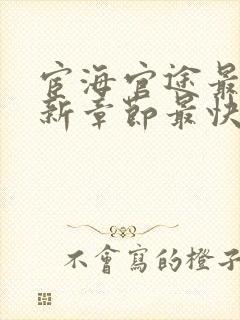 宦海官途最
新章節最快
不會寫的橙子